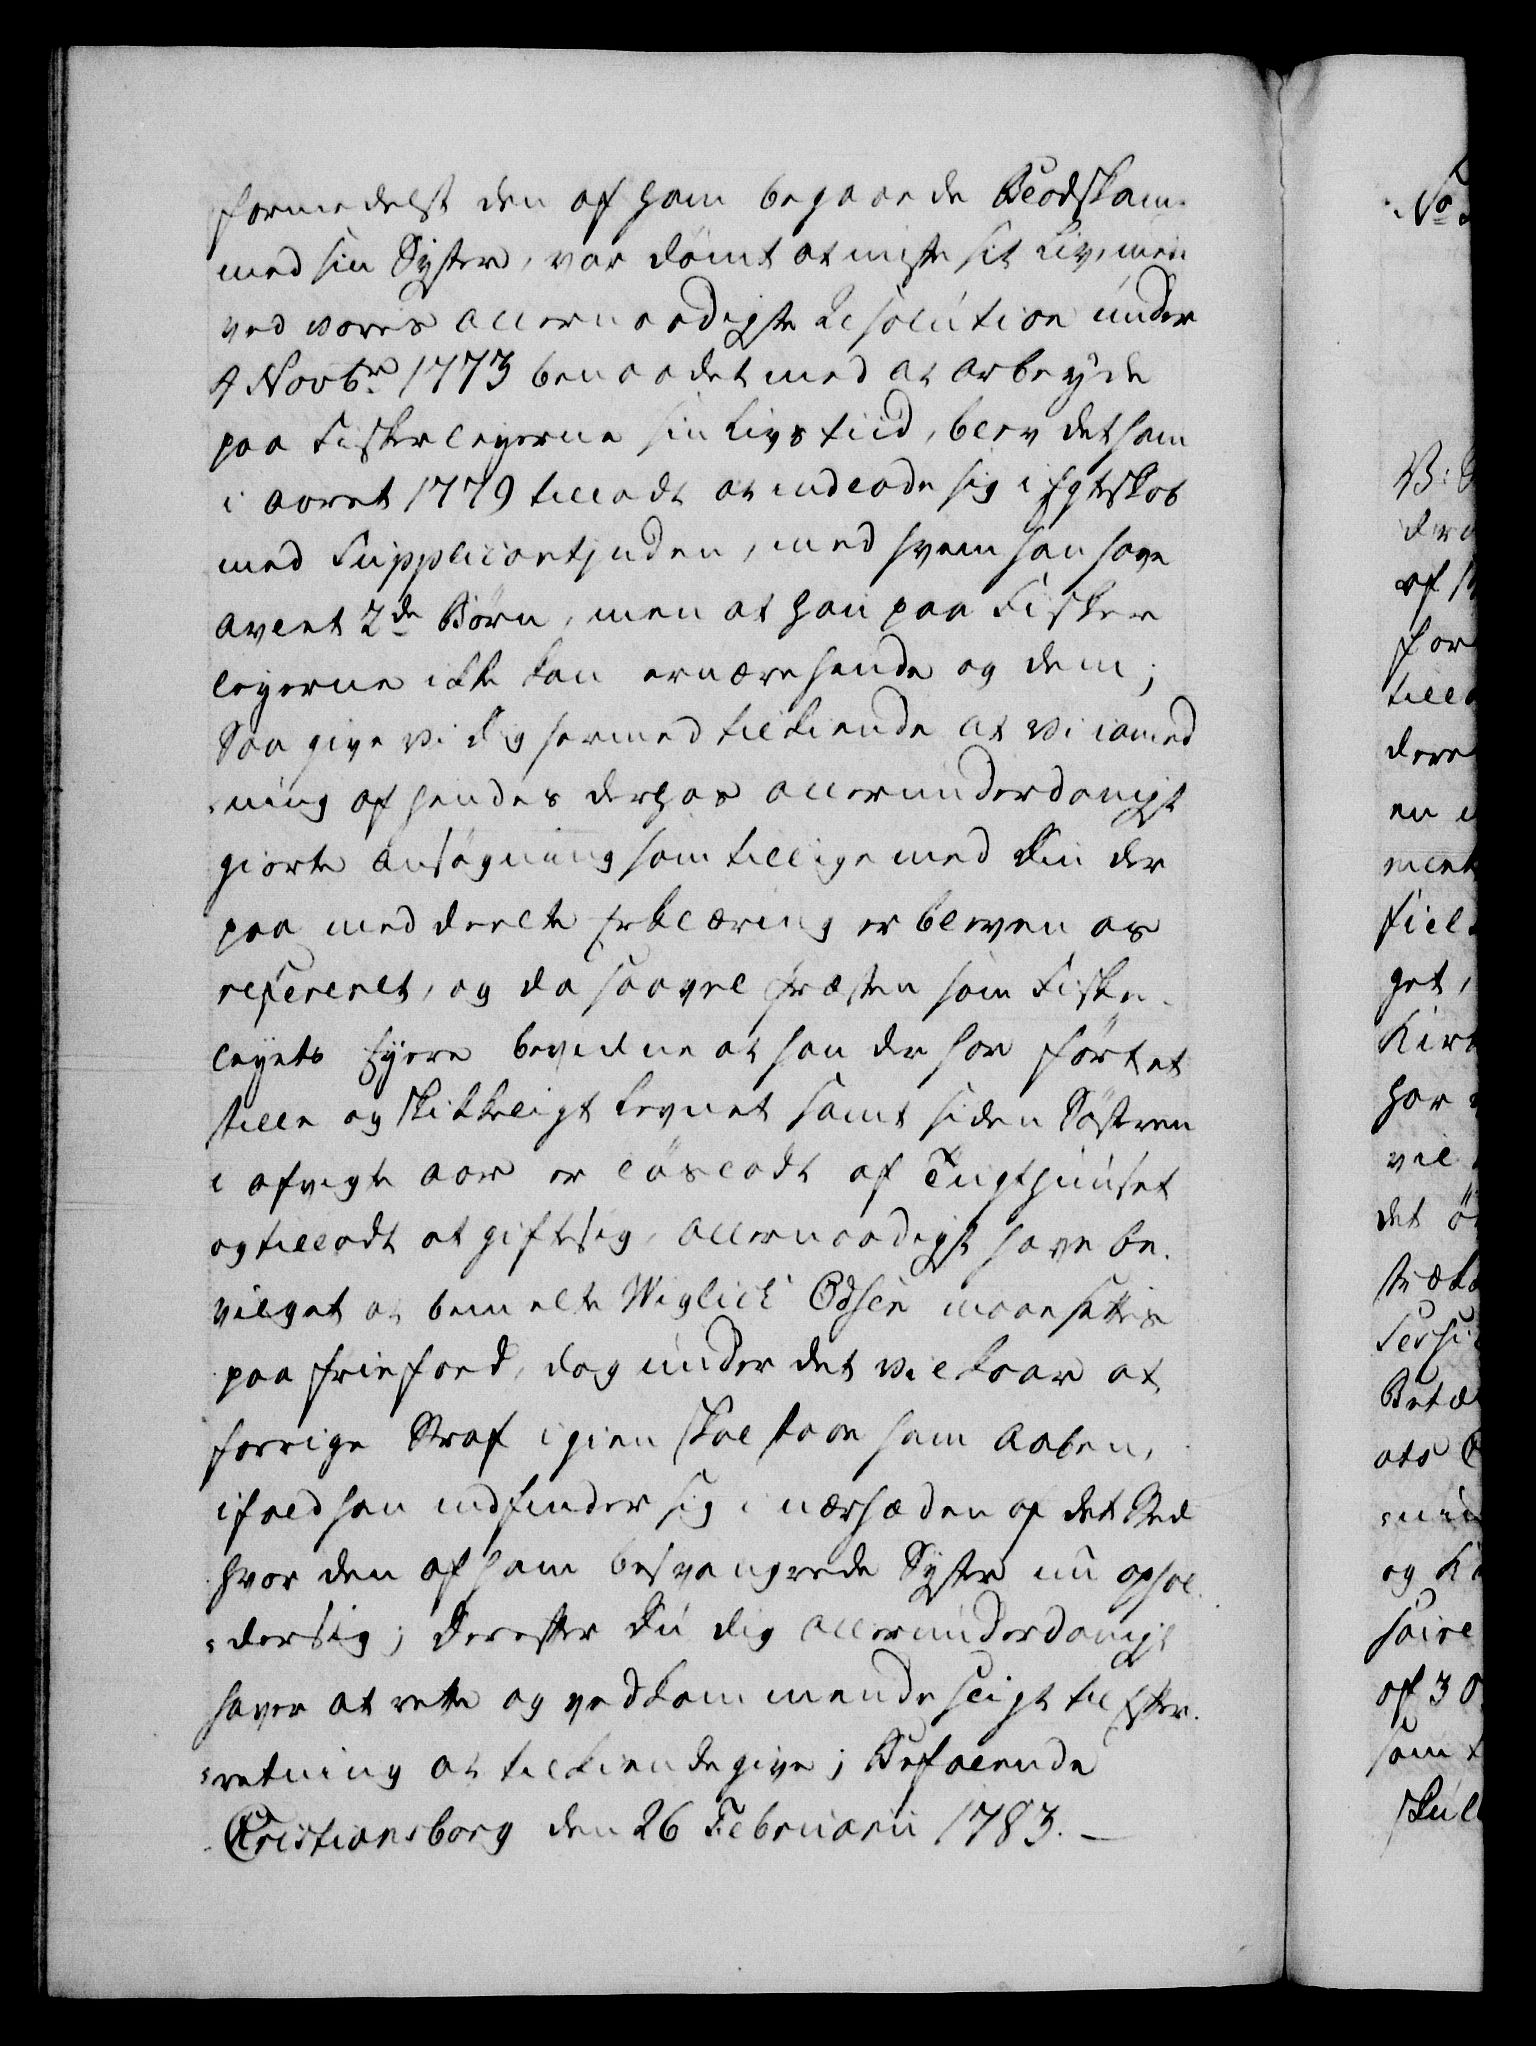 formedelst den af ham begaaede Blodskam
med sin Syster, var dömt at miste sit Liv, men
ved vores allernaadigste Resolution under
4 Novbr. 1773 benaadet med at arbeyde
paa Fiskerleyerne sin Livs tiid, blev det ham
i aaret 1779 tilladt at indlade sig i Egteskab
med Supplicantinden, med hvem han have
avlet 2de Börn, men at han paa Fisker
leyerne ikke kan ernære hende og dem;
Saa give vi dig hermed tilkiende at vi i anled
-ning af hendes derhos allerunderdanigst
giorte ansögning som tillige med din der
paa meddeelte Erklæring er bleven os
refereret, og da saavel Præsten som Fiske-
leyets Eyere bevidne at han der har fört et
stille og skikkeligt Levnet samt siden Söstren
i afvigte aar er lösladt af Tugthuuset
og tilladt at gifte sig, allernaadigst have be-
vilget at bemelte Wiglich Odsen maae settes
paa frie foed, dog under det vilkaar at
forrige Straf igien skal staae ham aaben,
ifald han indfinder sig i nærheden af det Sted
hvor den af ham besvangrede Syster nu ophol-
-der sig; Derefter Du dig allerunderdanigst
haver at rette og vedkommende sligt til Efter-
-retning at tilkiendegive; Befalende
Christiansborg den 26 Februarii 1783. —
No
V: S
der
af
for
till
dere
en
ment
fiel
get,
Kir
har
vil
det
træk
Betæ
ats
og K
af 30
som
skul